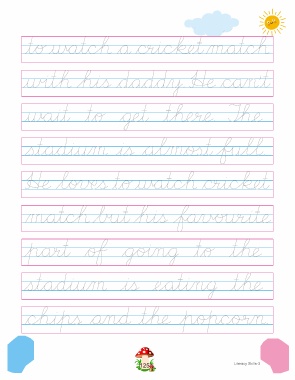 to watch a cricket match
with his daddy. He can't
wait to get there. The
stadium is almost full.
He loves to watch cricket
match but his favourite
part of going to the
stadium is eating the
chips and the popcorn.
125